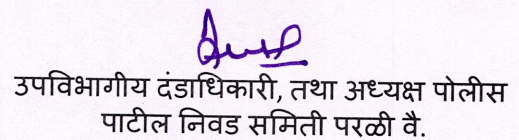 उपविभागीय दंडाधिकारी, तथा अध्यक्ष पोलीस
पाटील निवड समिती परळी वै.